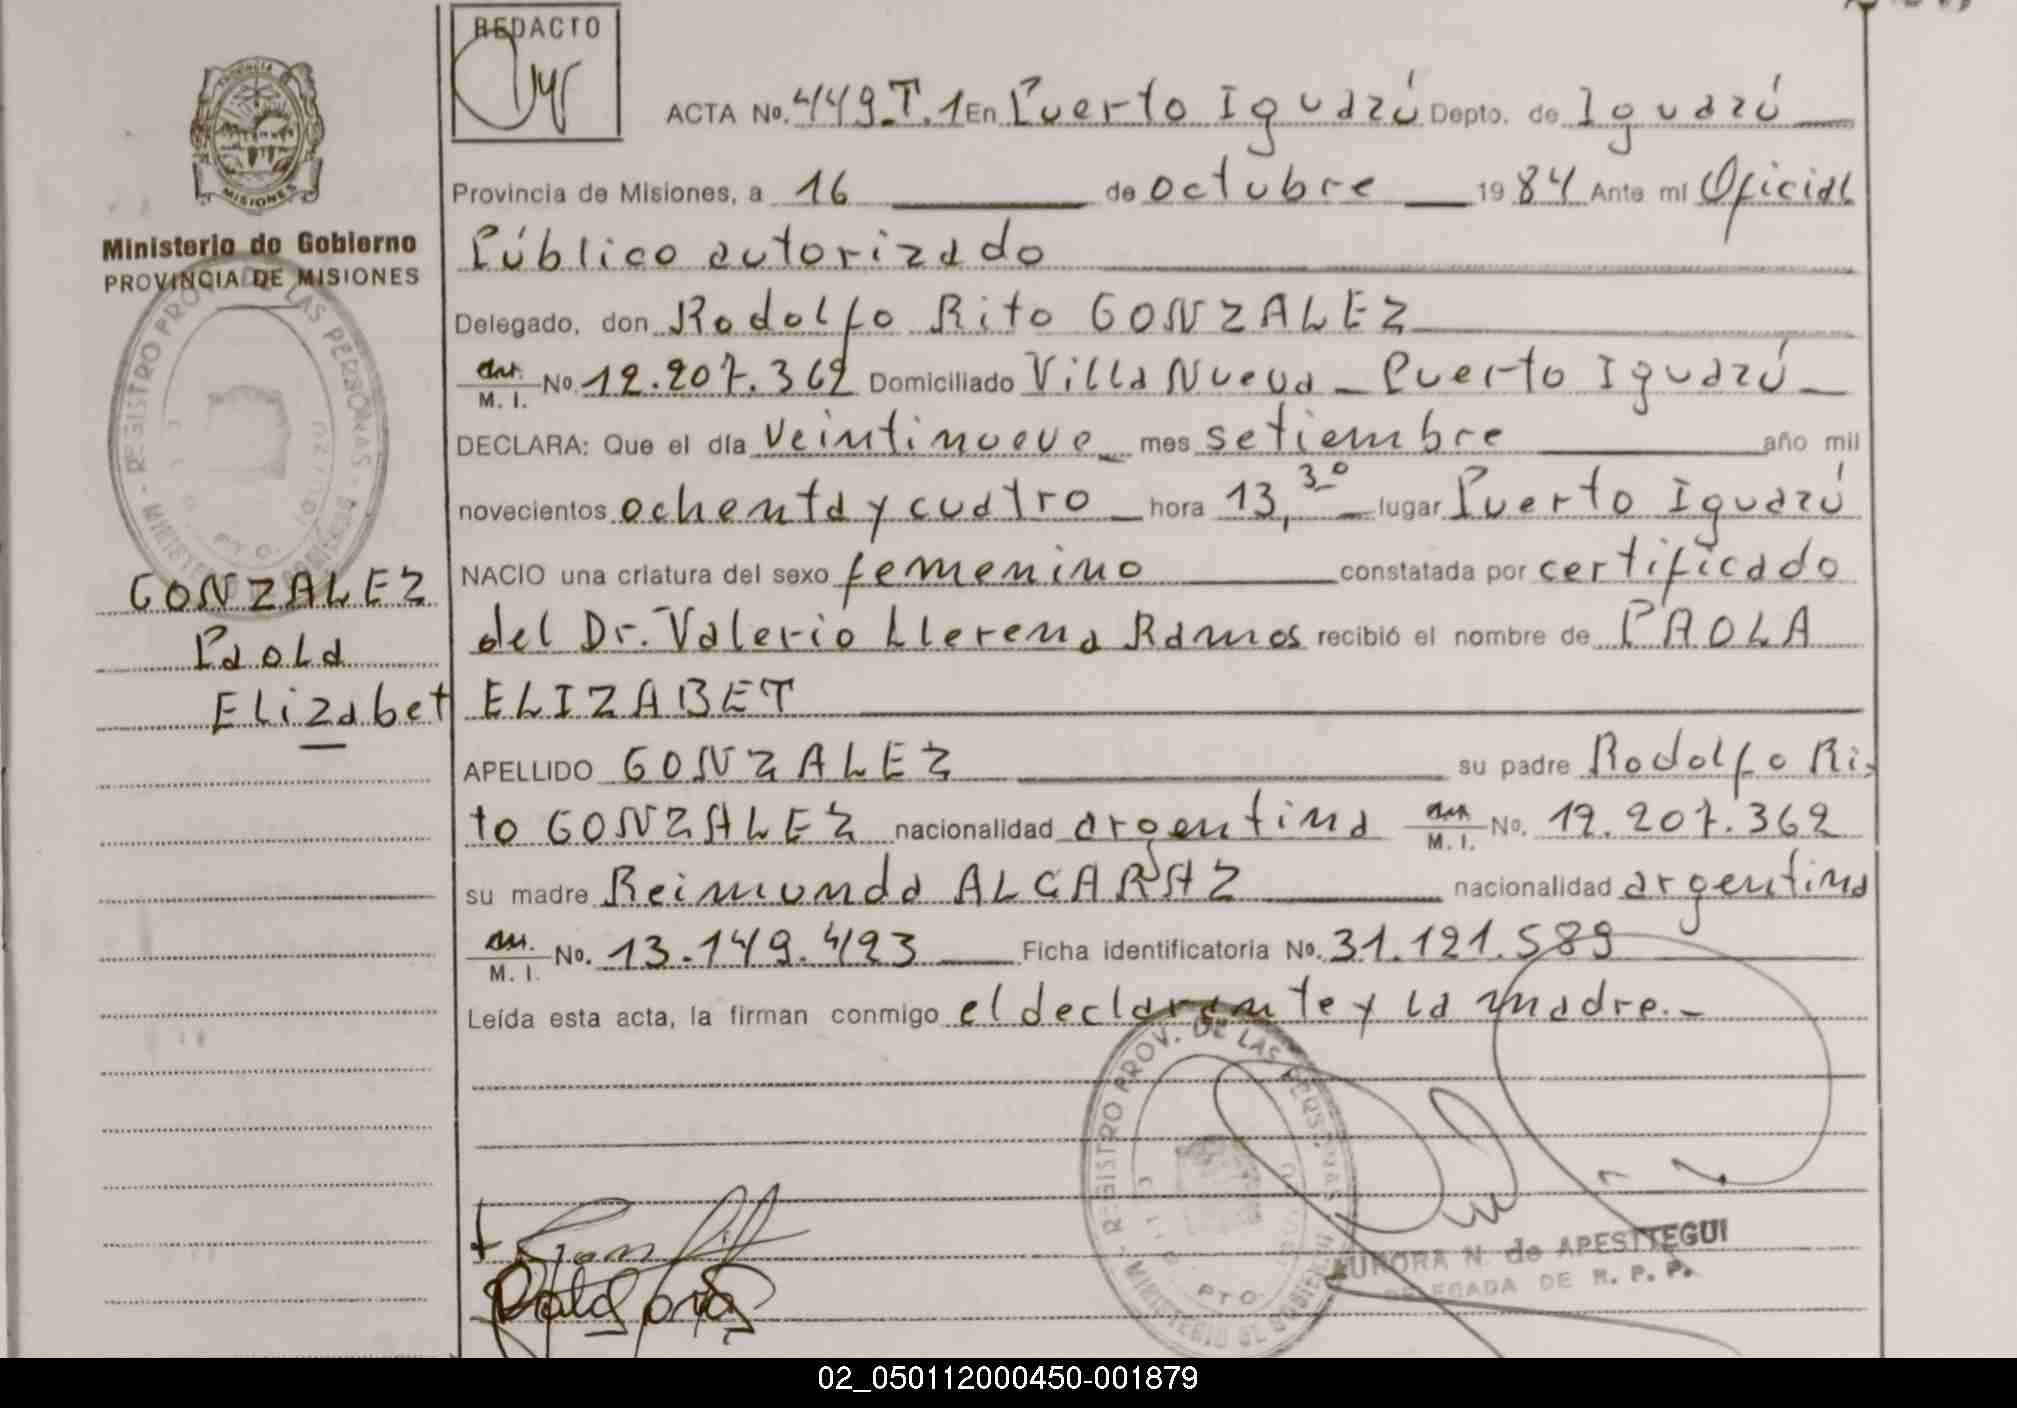 REDACTO
ACTA No. 449.T.1 En Puerto Iguazú Depto. de Iguazú
PROVINCIA
MISIONES
Provincia de Misiones, a 16 de octubre 1984 Ante mí Oficial
Ministerio de Gobierno
Público autorizado
PROVINCIA DE MISIONES
Delegado, don Rodolfo Rito GONZALEZ
M. I. No. 12.207.362 Domiciliado Villa Nueva - Puerto Iguazú -
DECLARA: Que el día veintinueve mes setiembre año mil
novecientos ochenta y cuatro hora 13,30 lugar Puerto Iguazú
REGISTRO PROV. DE LAS PERSONAS
GONZALEZ
NACIO una criatura del sexo femenino constatada por certificado
Paola
del Dr. Valerio Llerena Ramos recibió el nombre de PAOLA
Elizabet
ELIZABET
APELLIDO GONZALEZ su padre Rodolfo Ri-
to GONZALEZ nacionalidad argentina M. I. No. 12.207.362
su madre Reimunda ALCARAZ nacionalidad argentina
M. I. No. 13.149.493 Ficha identificatoria No. 31.121.589
Leída esta acta, la firman conmigo el declarante y la madre.-
REGISTRO PROV. DE LAS PERSONAS
MINISTERIO DE GOBIERNO
PTO.
AURORA N. de APESTTEGUI
DELEGADA DE R. P. P.
02_050112000450-001879